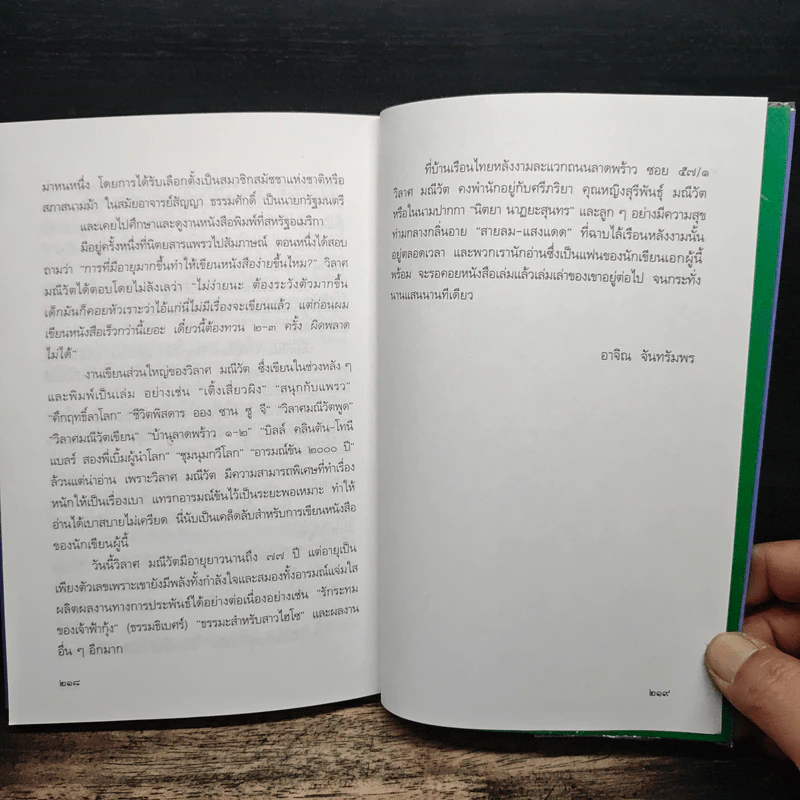 มาหนหนึ่ง โดยการได้รับเลือกตั้งเป็นสมาชิกสมัชชาแห่งชาติหรือ
สภาสนามม้า ในสมัยอาจารย์สัญญา ธรรมศักดิ์ เป็นนายกรัฐมนตรี
และเคยไปศึกษาและดูงานหนังสือพิมพ์ที่สหรัฐอเมริกา
มีอยู่ครั้งหนึ่งที่นิตยสารแพรวไปสัมภาษณ์ ตอนหนึ่งได้สอบ
ถามว่า "การที่มีอายุมากขึ้นทำให้เขียนหนังสือง่ายขึ้นไหม?" วิลาศ
มณีวัตได้ตอบโดยไม่ลังเลว่า "ไม่ง่ายนะ ต้องระวังตัวมากขึ้น
เด็กมันก็คอยหัวเราะว่าไอ้แก่นี่ไม่มีเรื่องจะเขียนแล้ว แต่ก่อนผม
เขียนหนังสือเร็วกว่านี้เยอะ เดี๋ยวนี้ต้องทวน ๒-๓ ครั้ง ผิดพลาด
ไม่ได้"
งานเขียนส่วนใหญ่ของวิลาศ มณีวัต ซึ่งเขียนในช่วงหลัง ๆ
และพิมพ์เป็นเล่ม อย่างเช่น "เติ้งเสี่ยวผิง" "สนุกกับแพรว"
"คึกฤทธิ์ลาโลก" "ชีวิตพิสดาร ออง ซาน ซู จี" "วิลาศมณีวัตพูด"
"วิลาศมณีวัตเขียน" "บ้านลาดพร้าว ๑-๒" "บิลล์ คลินตัน-โทนี
แบลร์ สองพี่เบิ้มผู้นำโลก" "ชุมนุมกวีโลก" "อารมณ์ขัน ๒๐๐๐ ปี"
ล้วนแต่น่าอ่าน เพราะวิลาศ มณีวัต มีความสามารถพิเศษที่ทำเรื่อง
หนักให้เป็นเรื่องเบา แทรกอารมณ์ขันไว้เป็นระยะพอเหมาะ ทำให้
อ่านได้เบาสบายไม่เครียด นี่นับเป็นเคล็ดลับสำหรับการเขียนหนังสือ
ของนักเขียนผู้นี้
วันนี้วิลาศ มณีวัตมีอายุยาวนานถึง ๗๗ ปี แต่อายุเป็น
เพียงตัวเลขเพราะเขายังมีพลังทั้งกำลังใจและสมองทั้งอารมณ์แจ่มใส
ผลิตผลงานทางการประพันธ์ได้อย่างต่อเนื่องอย่างเช่น "รักระทม
ของเจ้าฟ้ากุ้ง" (ธรรมธิเบศร์) "ธรรมะสำหรับสาวไฮโซ" และผลงาน
อื่น ๆ อีกมาก
๒๑๘
ที่บ้านเรือนไทยหลังงามละแวกถนนลาดพร้าว ซอย ๕๗/๑
วิลาศ มณีวัต คงพำนักอยู่กับศรีภริยา คุณหญิงสุรีพันธุ์ มณีวัต
หรือในนามปากกา "นิตยา นาฏยะสุนทร" และลูก ๆ อย่างมีความสุข
ท่ามกลางกลิ่นอาย "สายลม-แสงแดด" ที่ฉาบไล้เรือนหลังงามนั้น
อยู่ตลอดเวลา และพวกเรานักอ่านซึ่งเป็นแฟนของนักเขียนเอกผู้นี้
พร้อม จะรอคอยหนังสือเล่มแล้วเล่มเล่าของเขาอยู่ต่อไป จนกระทั่ง
นานแสนนานทีเดียว
อาจิณ จันทรัมพร
๒๑๙